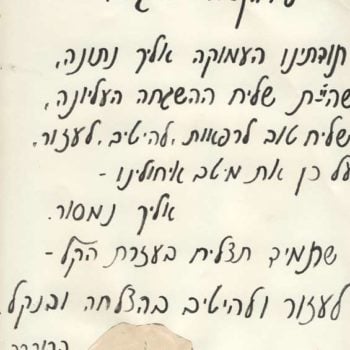 תודתינו העמוקה אליך נתונה,
שהיית שליח ההשגחה העליונה,
שליח טוב לרפאות, להיטיב, לעזור,
על כן את מיטב איחולינו -
אליך נמסור.
שתמיד תצליח בעזרת הקל -
לעזור ולהיטיב בהצלחה ובנקל.